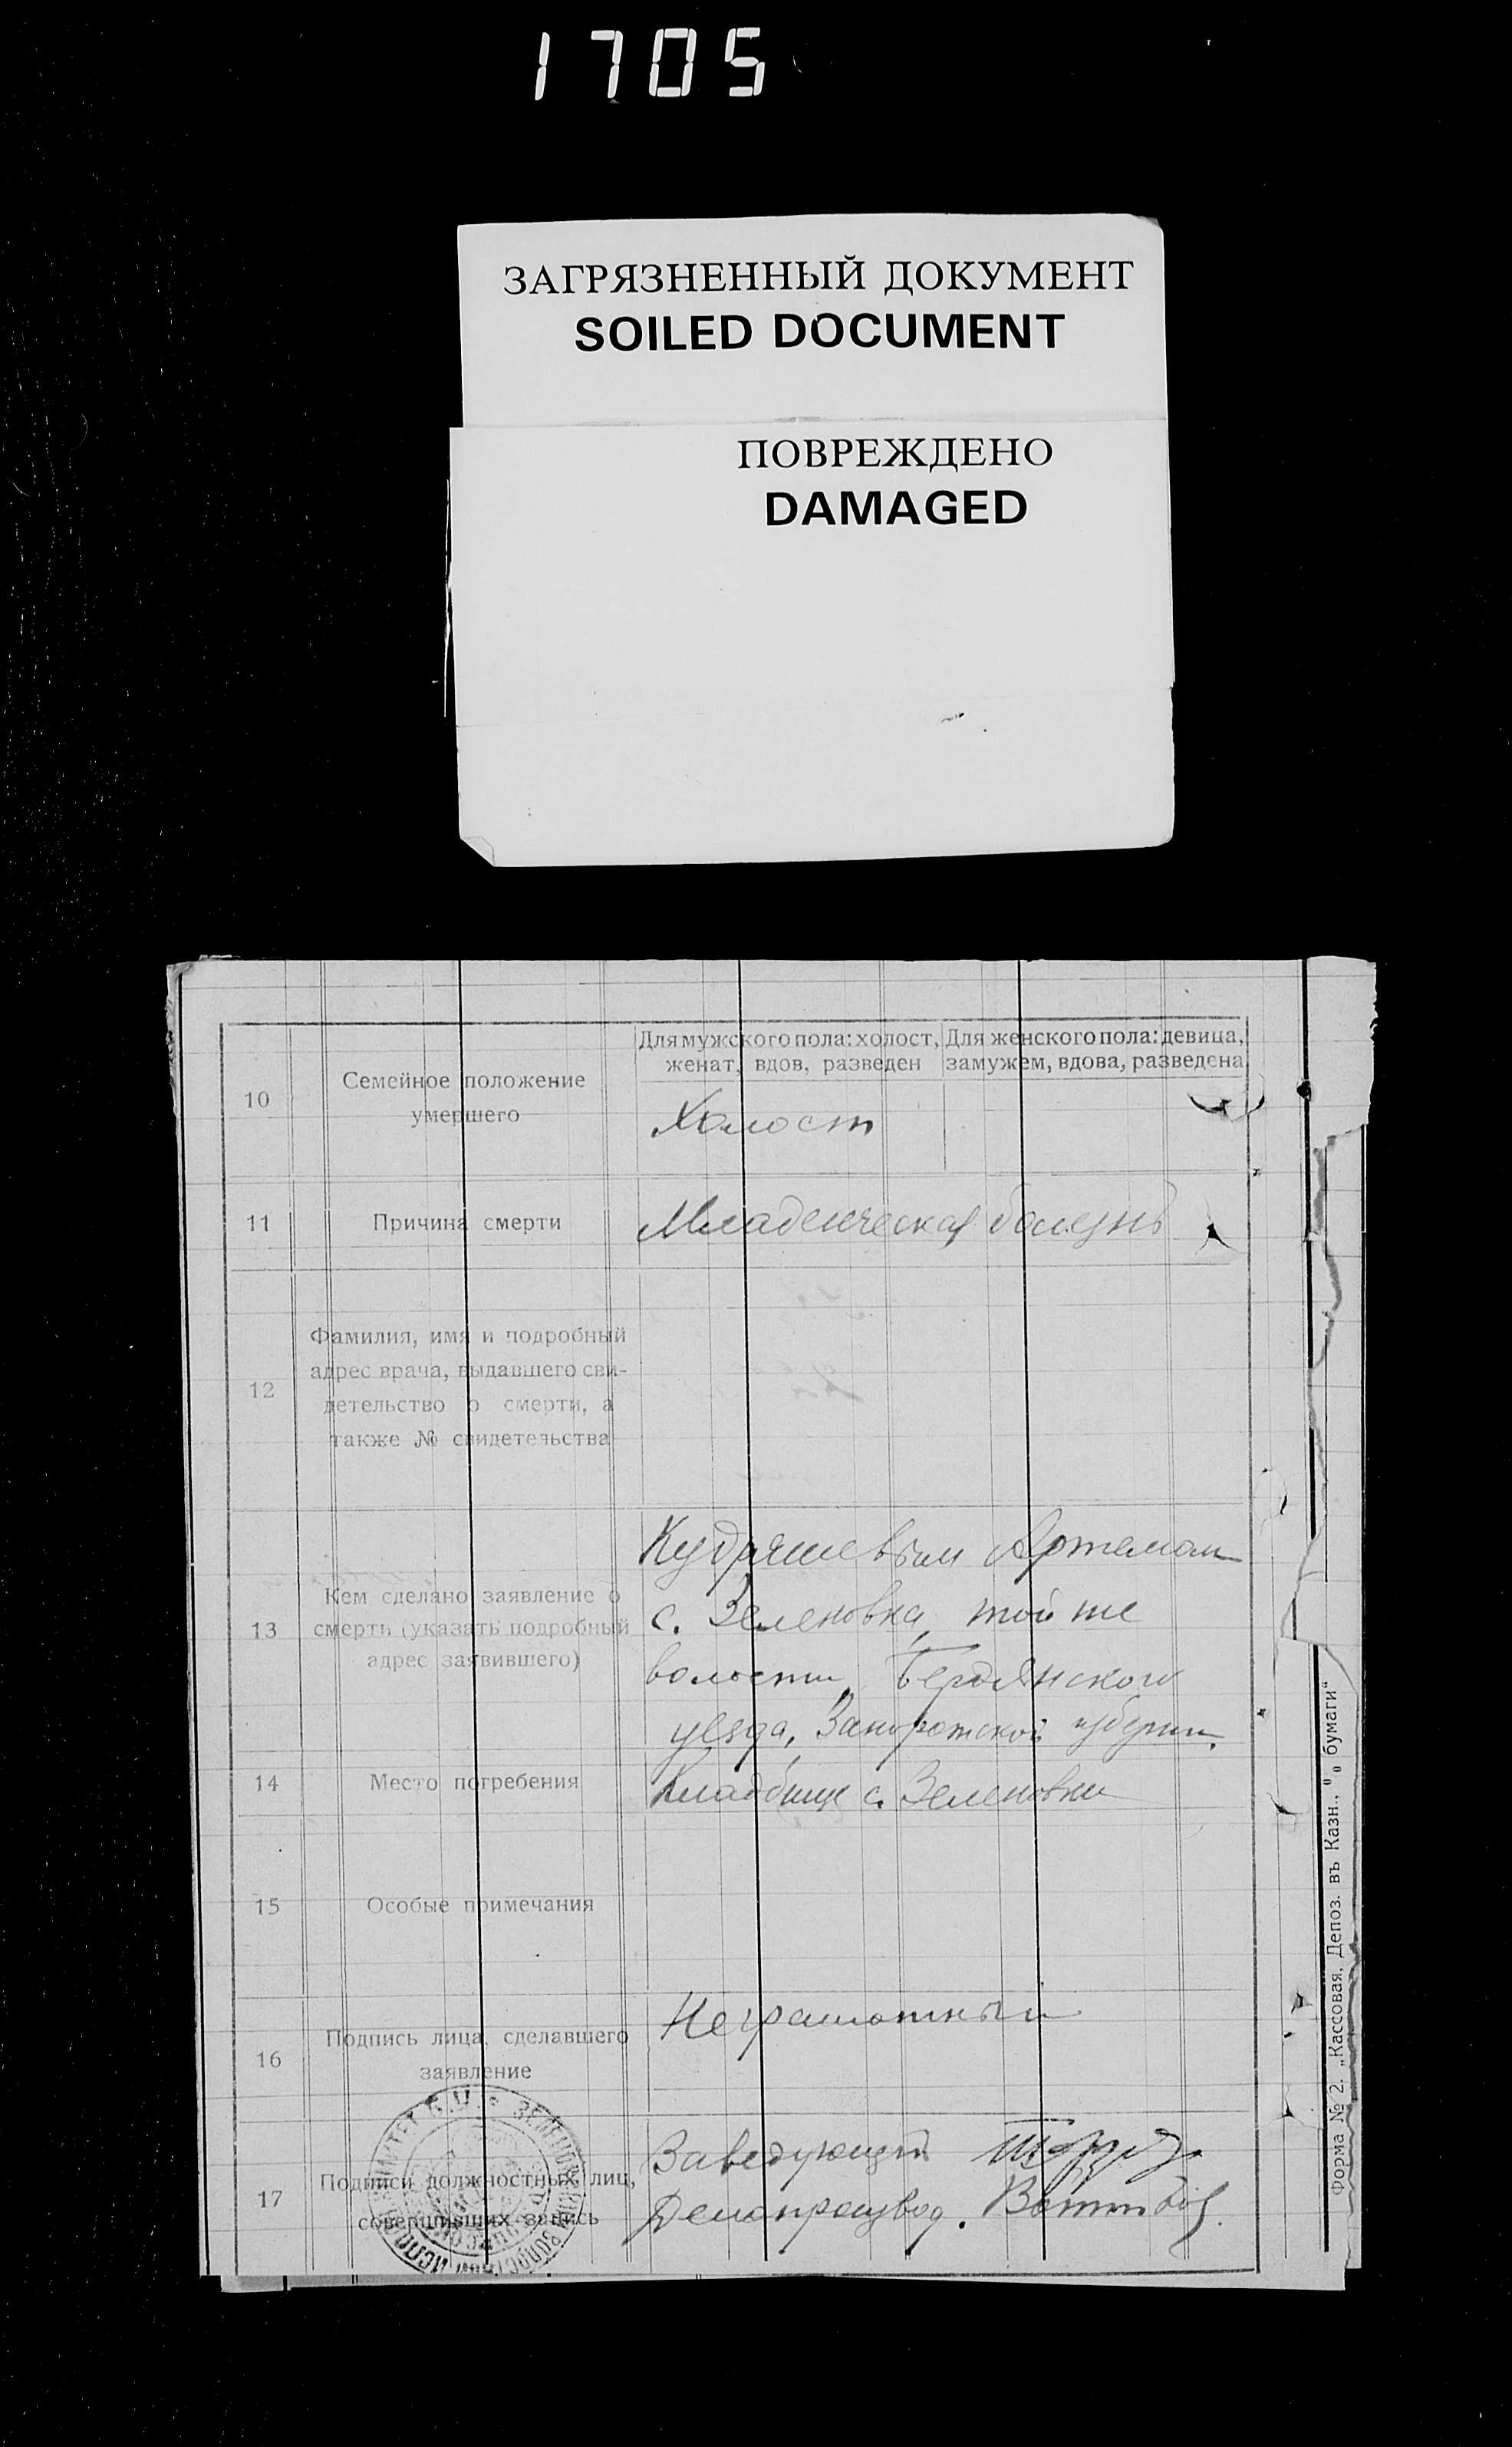 1705
ЗАГРЯЗНЕННЫЙ ДОКУМЕНТ
SOILED DOCUMENT
ПОВРЕЖДЕНО
DAMAGED
10
Семейное положение
умершего
Для мужского пола: холост,
женат, вдов, разведен
Для женского пола: девица,
замужем, вдова, разведена
Холост
11
Причина смерти
Младенческая болезнь
12
Фамилия, имя и подробный
адрес врача, выдавшего сви-
детельство о смерти, а
также № свидетельства
13
Кем сделано заявление о
смерти (указать подробный
адрес заявившего)
Кудряшевым Артемом
с. Зеленовка, той же
волости, Бердянского
уезда, Запорожской губернии.
14
Место погребения
Кладбище с. Зеленовки
15
Особые примечания
16
Подпись лица, сделавшего
заявление
Неграмотный
17
Подписи должностных лиц,
совершивших запись
Заведующий
Делопроизвод.
Форма № 2. „Кассовая, Депоз. въ Казн., % бумаги“